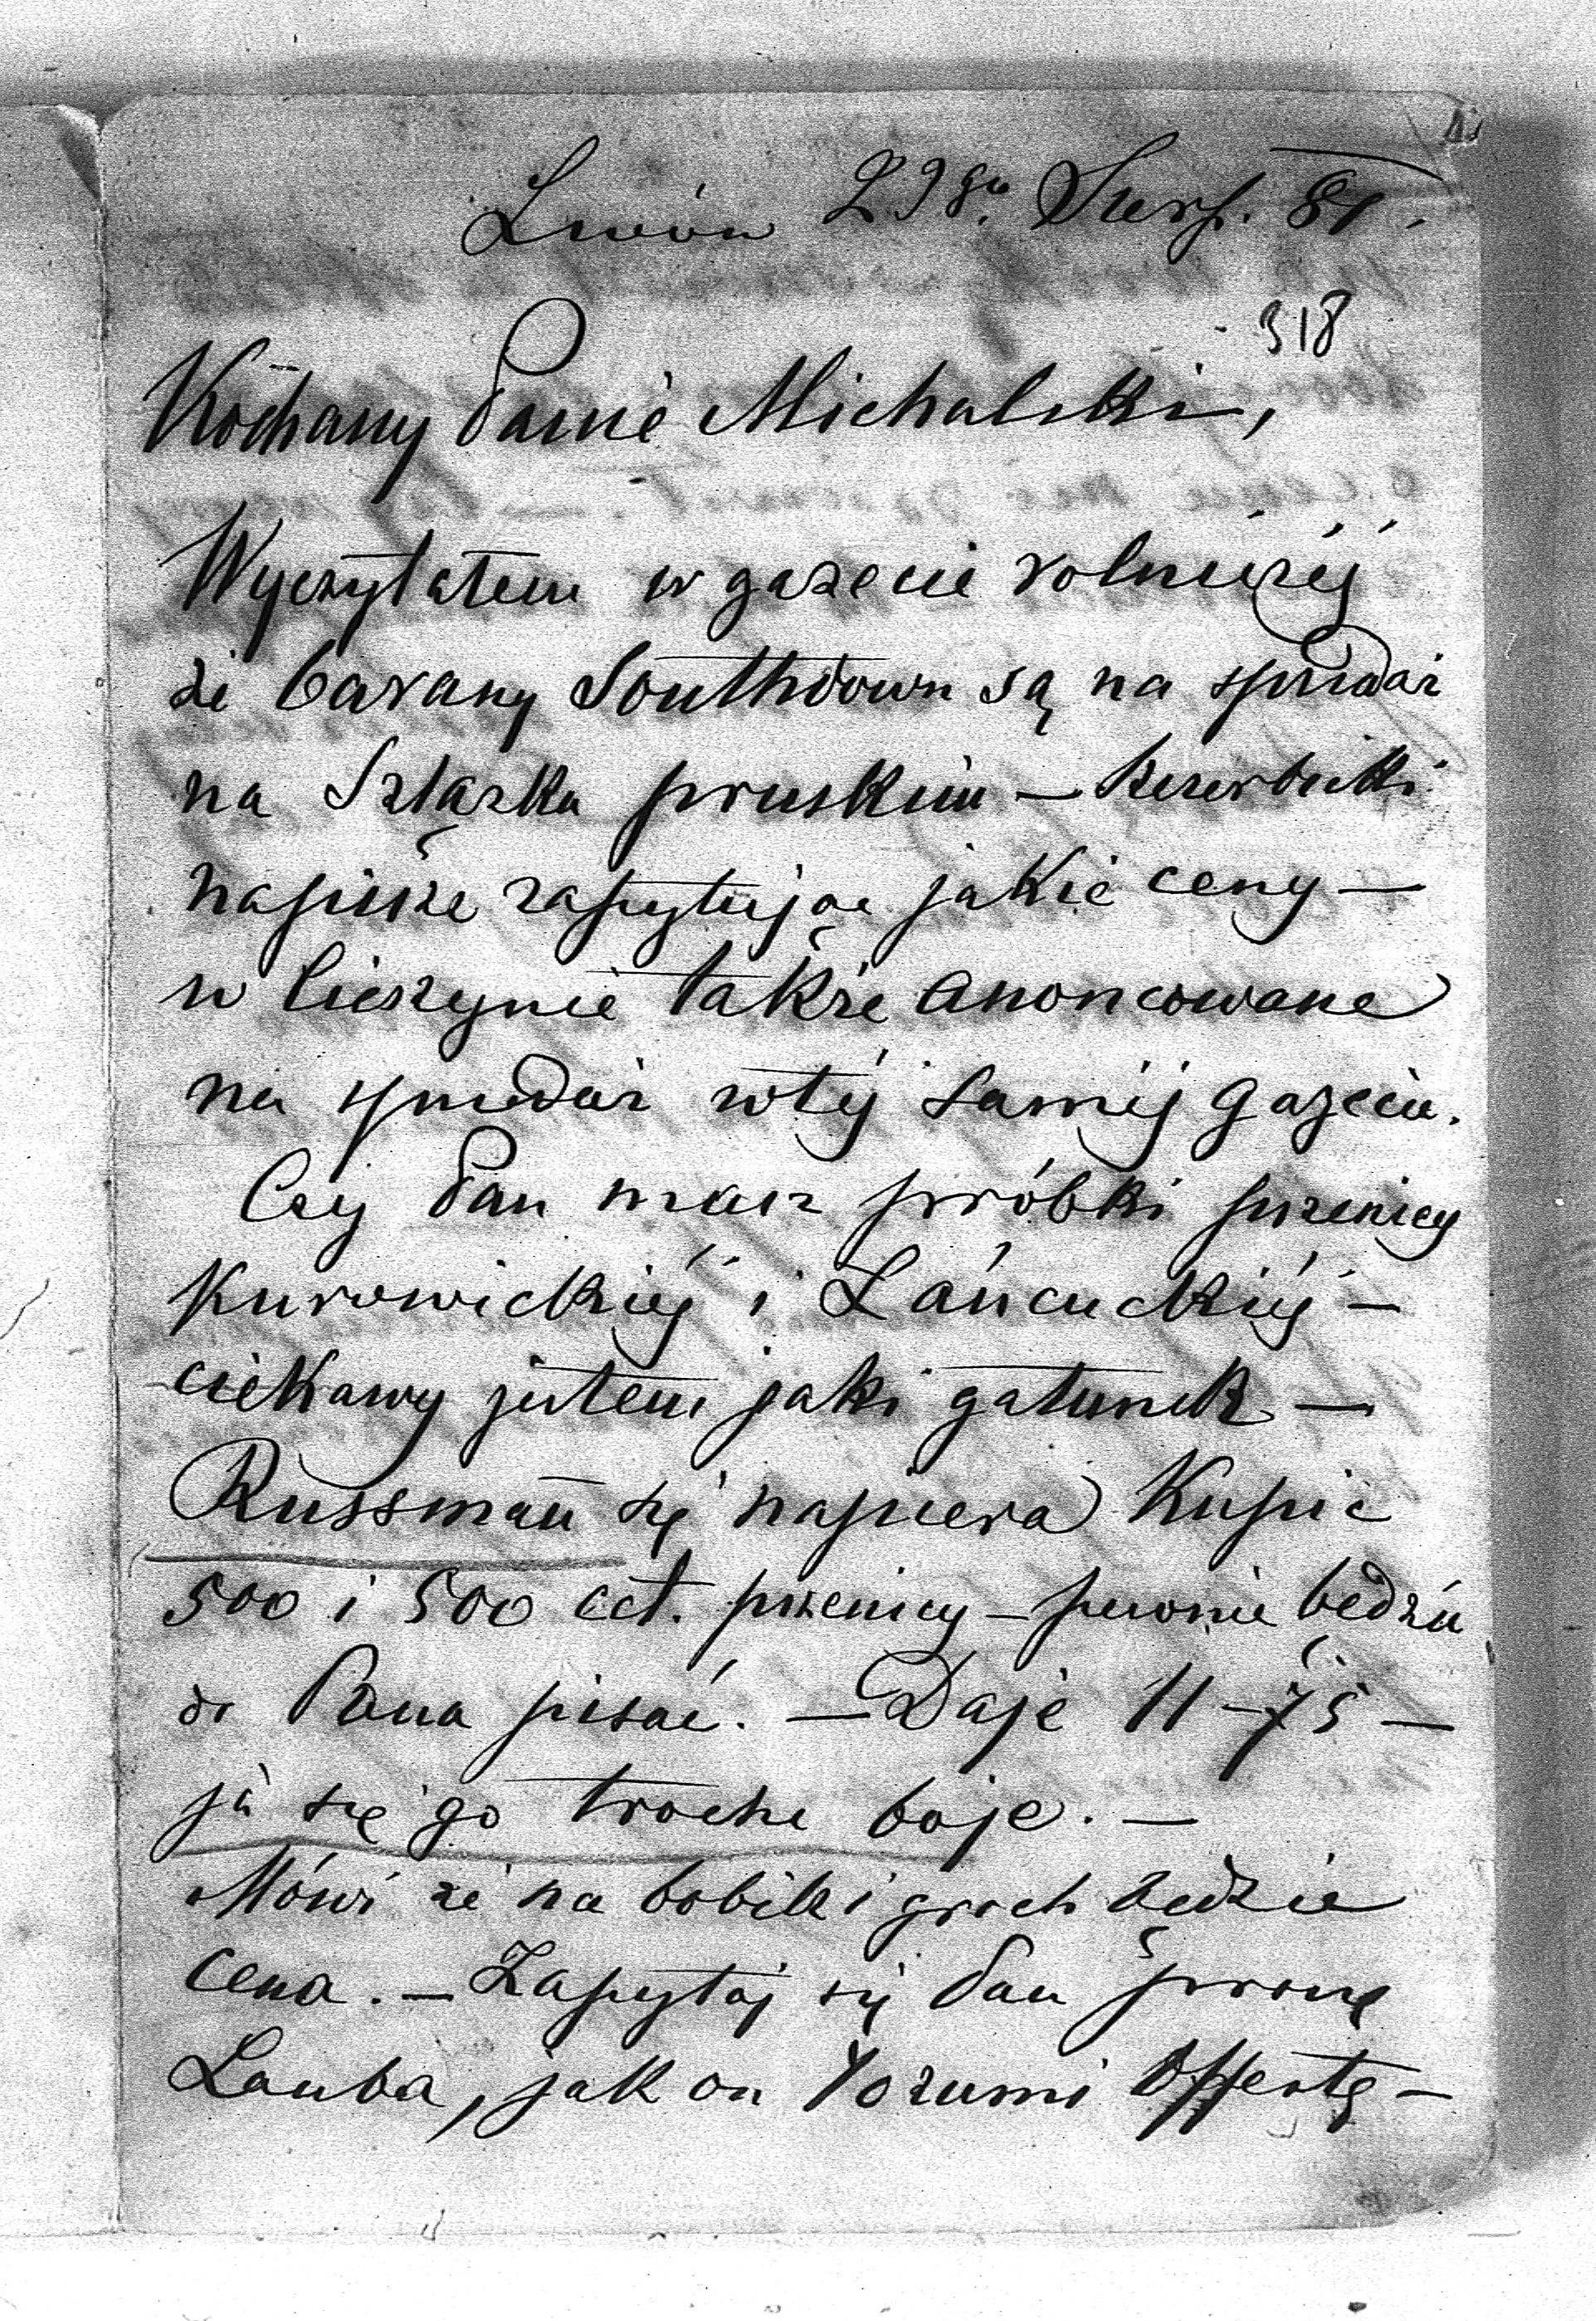 Lwów 29go. Sierp. 81.
318
Kochany Panie Michalski,
Wyczytałem w gazecie rolniczéj
że barany Southdown są na sprzedaż
na Szląsku pruskim —
napisze zapytując jakie ceny —
w Cieszynie także anoncowane
na sprzedaż w téj saméj gazecie.
Czy Pan masz próbki pszenicy
Kurowickiéj i Łańcuckiéj —
ciekawy jestem jaki gatunek —
Russman się napiera kupić
500 i 500 cet. pszenicy — pewnie będzie
do Pana pisać. — Daje 11–75 —
ja się go trochę boję. —
Mówi że na bobik i groch będzie
cena. — Zapytaj się Pan proszę
Lauba, jak on rozumi Offertę —